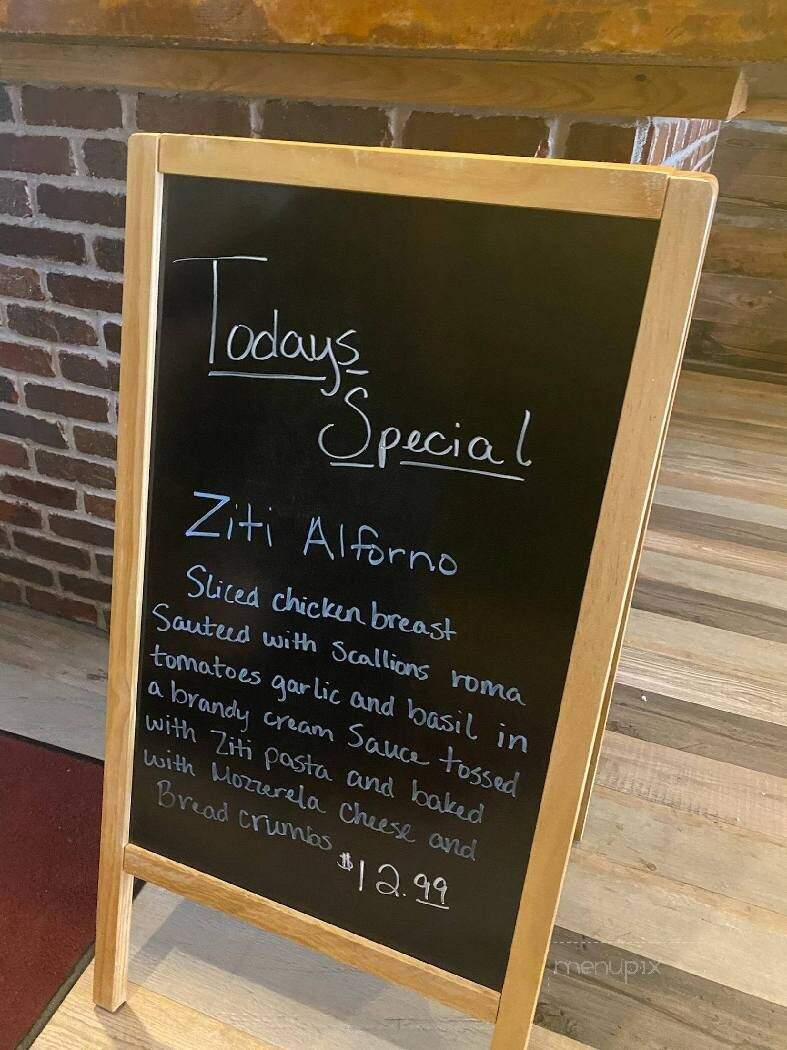 Todays
Special
Ziti Alforno
Sliced chicken breast
Sauteed with scallions roma
tomatoes garlic and basil in
a brandy cream Sauce tossed
with Ziti pasta and baked
with Mozzerela cheese and
Bread crumbs
$12.99
menupix